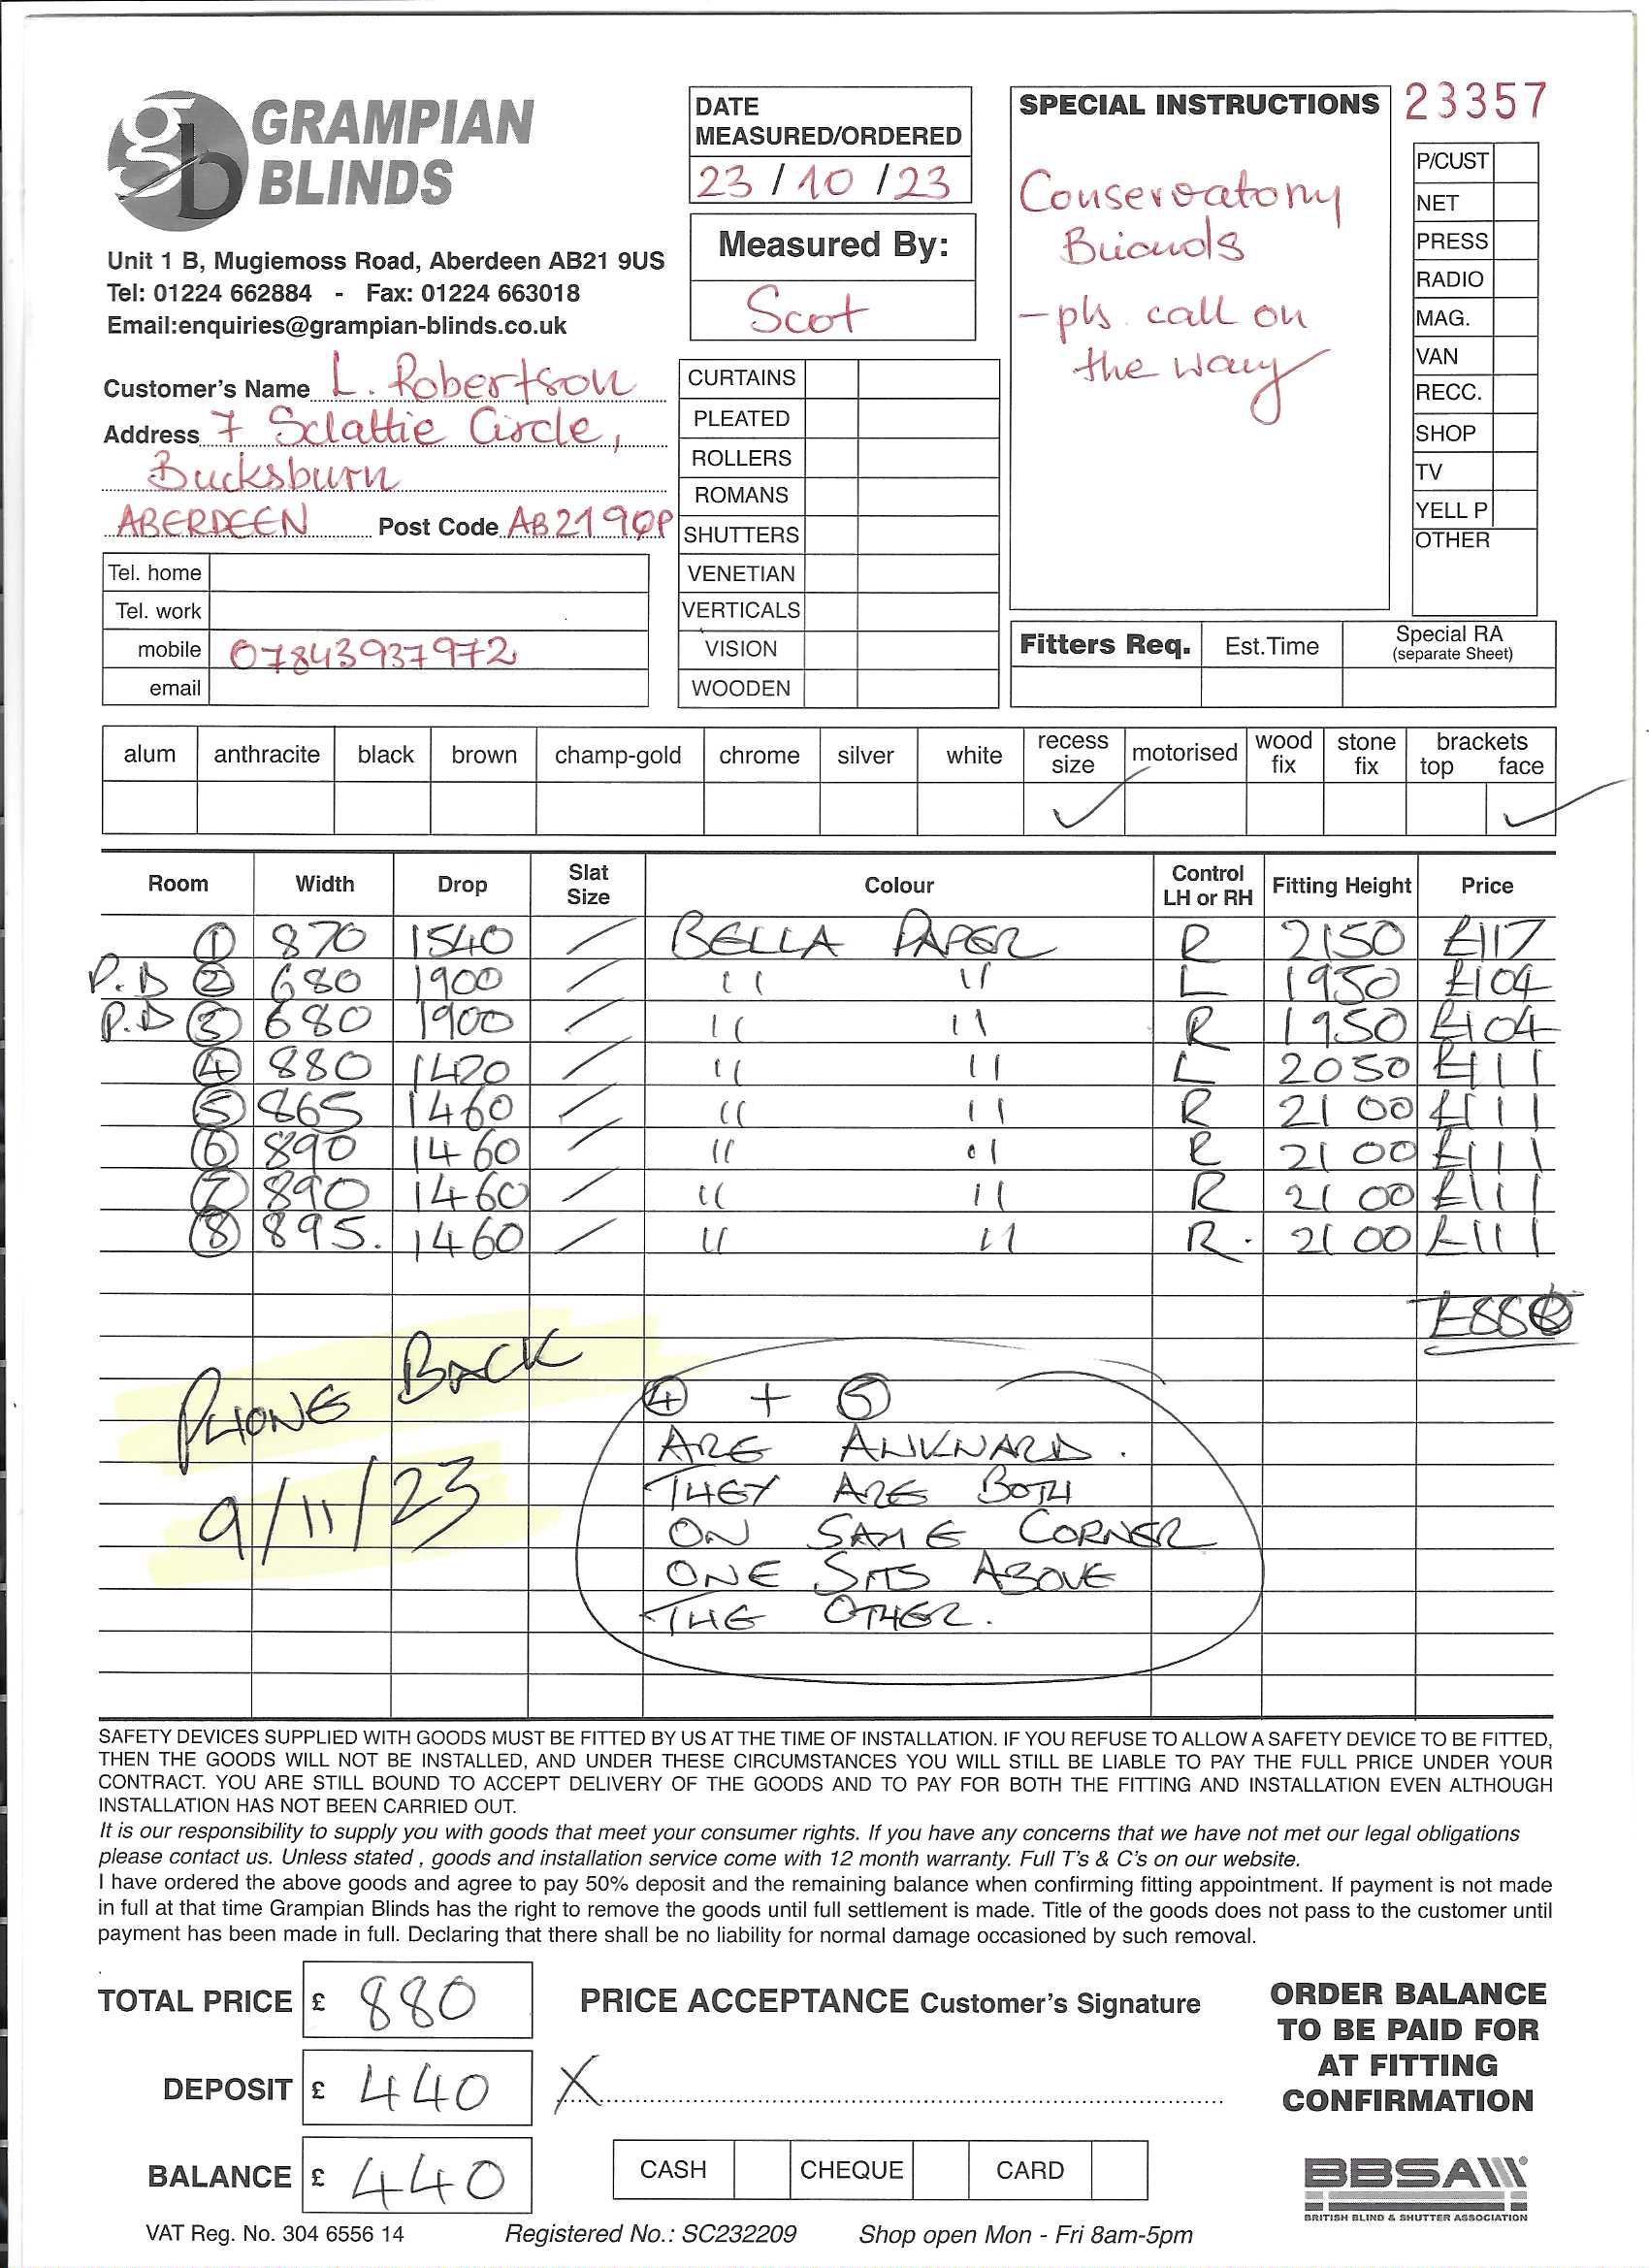 GRAMPIAN
BLINDS
Unit 1 B, Mugiemoss Road, Aberdeen AB21 9US
Tel: 01224 662884 - Fax: 01224 663018
Email:enquiries@grampian-blinds.co.uk
Customer's Name L. Robertson
Address 7 Sclattie Circle,
Bucksburn
ABERDEEN Post Code AB21 9QP
Tel. home
Tel. work
mobile 07843937972
email
DATE
MEASURED/ORDERED
23 / 10 / 23
Measured By:
Scot
CURTAINS
PLEATED
ROLLERS
ROMANS
SHUTTERS
VENETIAN
VERTICALS
VISION
WOODEN
SPECIAL INSTRUCTIONS
Conservatory
- pls call on
the way
23357
P/CUST
NET
PRESS
RADIO
MAG.
VAN
RECC.
SHOP
TV
YELL P
OTHER
Fitters Req. Est.Time Special RA
(separate Sheet)
alum anthracite black brown champ-gold chrome silver white recess size motorised wood fix stone fix brackets top face
✓ ✓
Room Width Drop Slat Size Colour Control LH or RH Fitting Height Price
① 870 1540 / BELLA PAPER R 2150 £117
P.D ② 680 1900 / " " L 1950 £104
P.D ③ 680 1900 / " " R 1950 £104
④ 880 1420 / " " L 2050 £111
⑤ 865 1460 / " " R 2100 £111
⑥ 890 1460 / " " R 2100 £111
⑦ 890 1460 / " " R 2100 £111
⑧ 895. 1460 / " " R. 2100 £111
£880
PHONE BACK
9/11/23
④ + ⑤
ARE AWKWARD.
THEY ARE BOTH
ON SAME CORNER
ONE SITS ABOVE
THE OTHER.
SAFETY DEVICES SUPPLIED WITH GOODS MUST BE FITTED BY US AT THE TIME OF INSTALLATION. IF YOU REFUSE TO ALLOW A SAFETY DEVICE TO BE FITTED,
THEN THE GOODS WILL NOT BE INSTALLED, AND UNDER THESE CIRCUMSTANCES YOU WILL STILL BE LIABLE TO PAY THE FULL PRICE UNDER YOUR
CONTRACT. YOU ARE STILL BOUND TO ACCEPT DELIVERY OF THE GOODS AND TO PAY FOR BOTH THE FITTING AND INSTALLATION EVEN ALTHOUGH
INSTALLATION HAS NOT BEEN CARRIED OUT.
It is our responsibility to supply you with goods that meet your consumer rights. If you have any concerns that we have not met our legal obligations
please contact us. Unless stated , goods and installation service come with 12 month warranty. Full T's & C's on our website.
I have ordered the above goods and agree to pay 50% deposit and the remaining balance when confirming fitting appointment. If payment is not made
in full at that time Grampian Blinds has the right to remove the goods until full settlement is made. Title of the goods does not pass to the customer until
payment has been made in full. Declaring that there shall be no liability for normal damage occasioned by such removal.
TOTAL PRICE £ 880
DEPOSIT £ 440
BALANCE £ 440
PRICE ACCEPTANCE Customer's Signature
X
CASH CHEQUE CARD
ORDER BALANCE
TO BE PAID FOR
AT FITTING
CONFIRMATION
BBSA
BRITISH BLIND & SHUTTER ASSOCIATION
VAT Reg. No. 304 6556 14 Registered No.: SC232209 Shop open Mon - Fri 8am-5pm